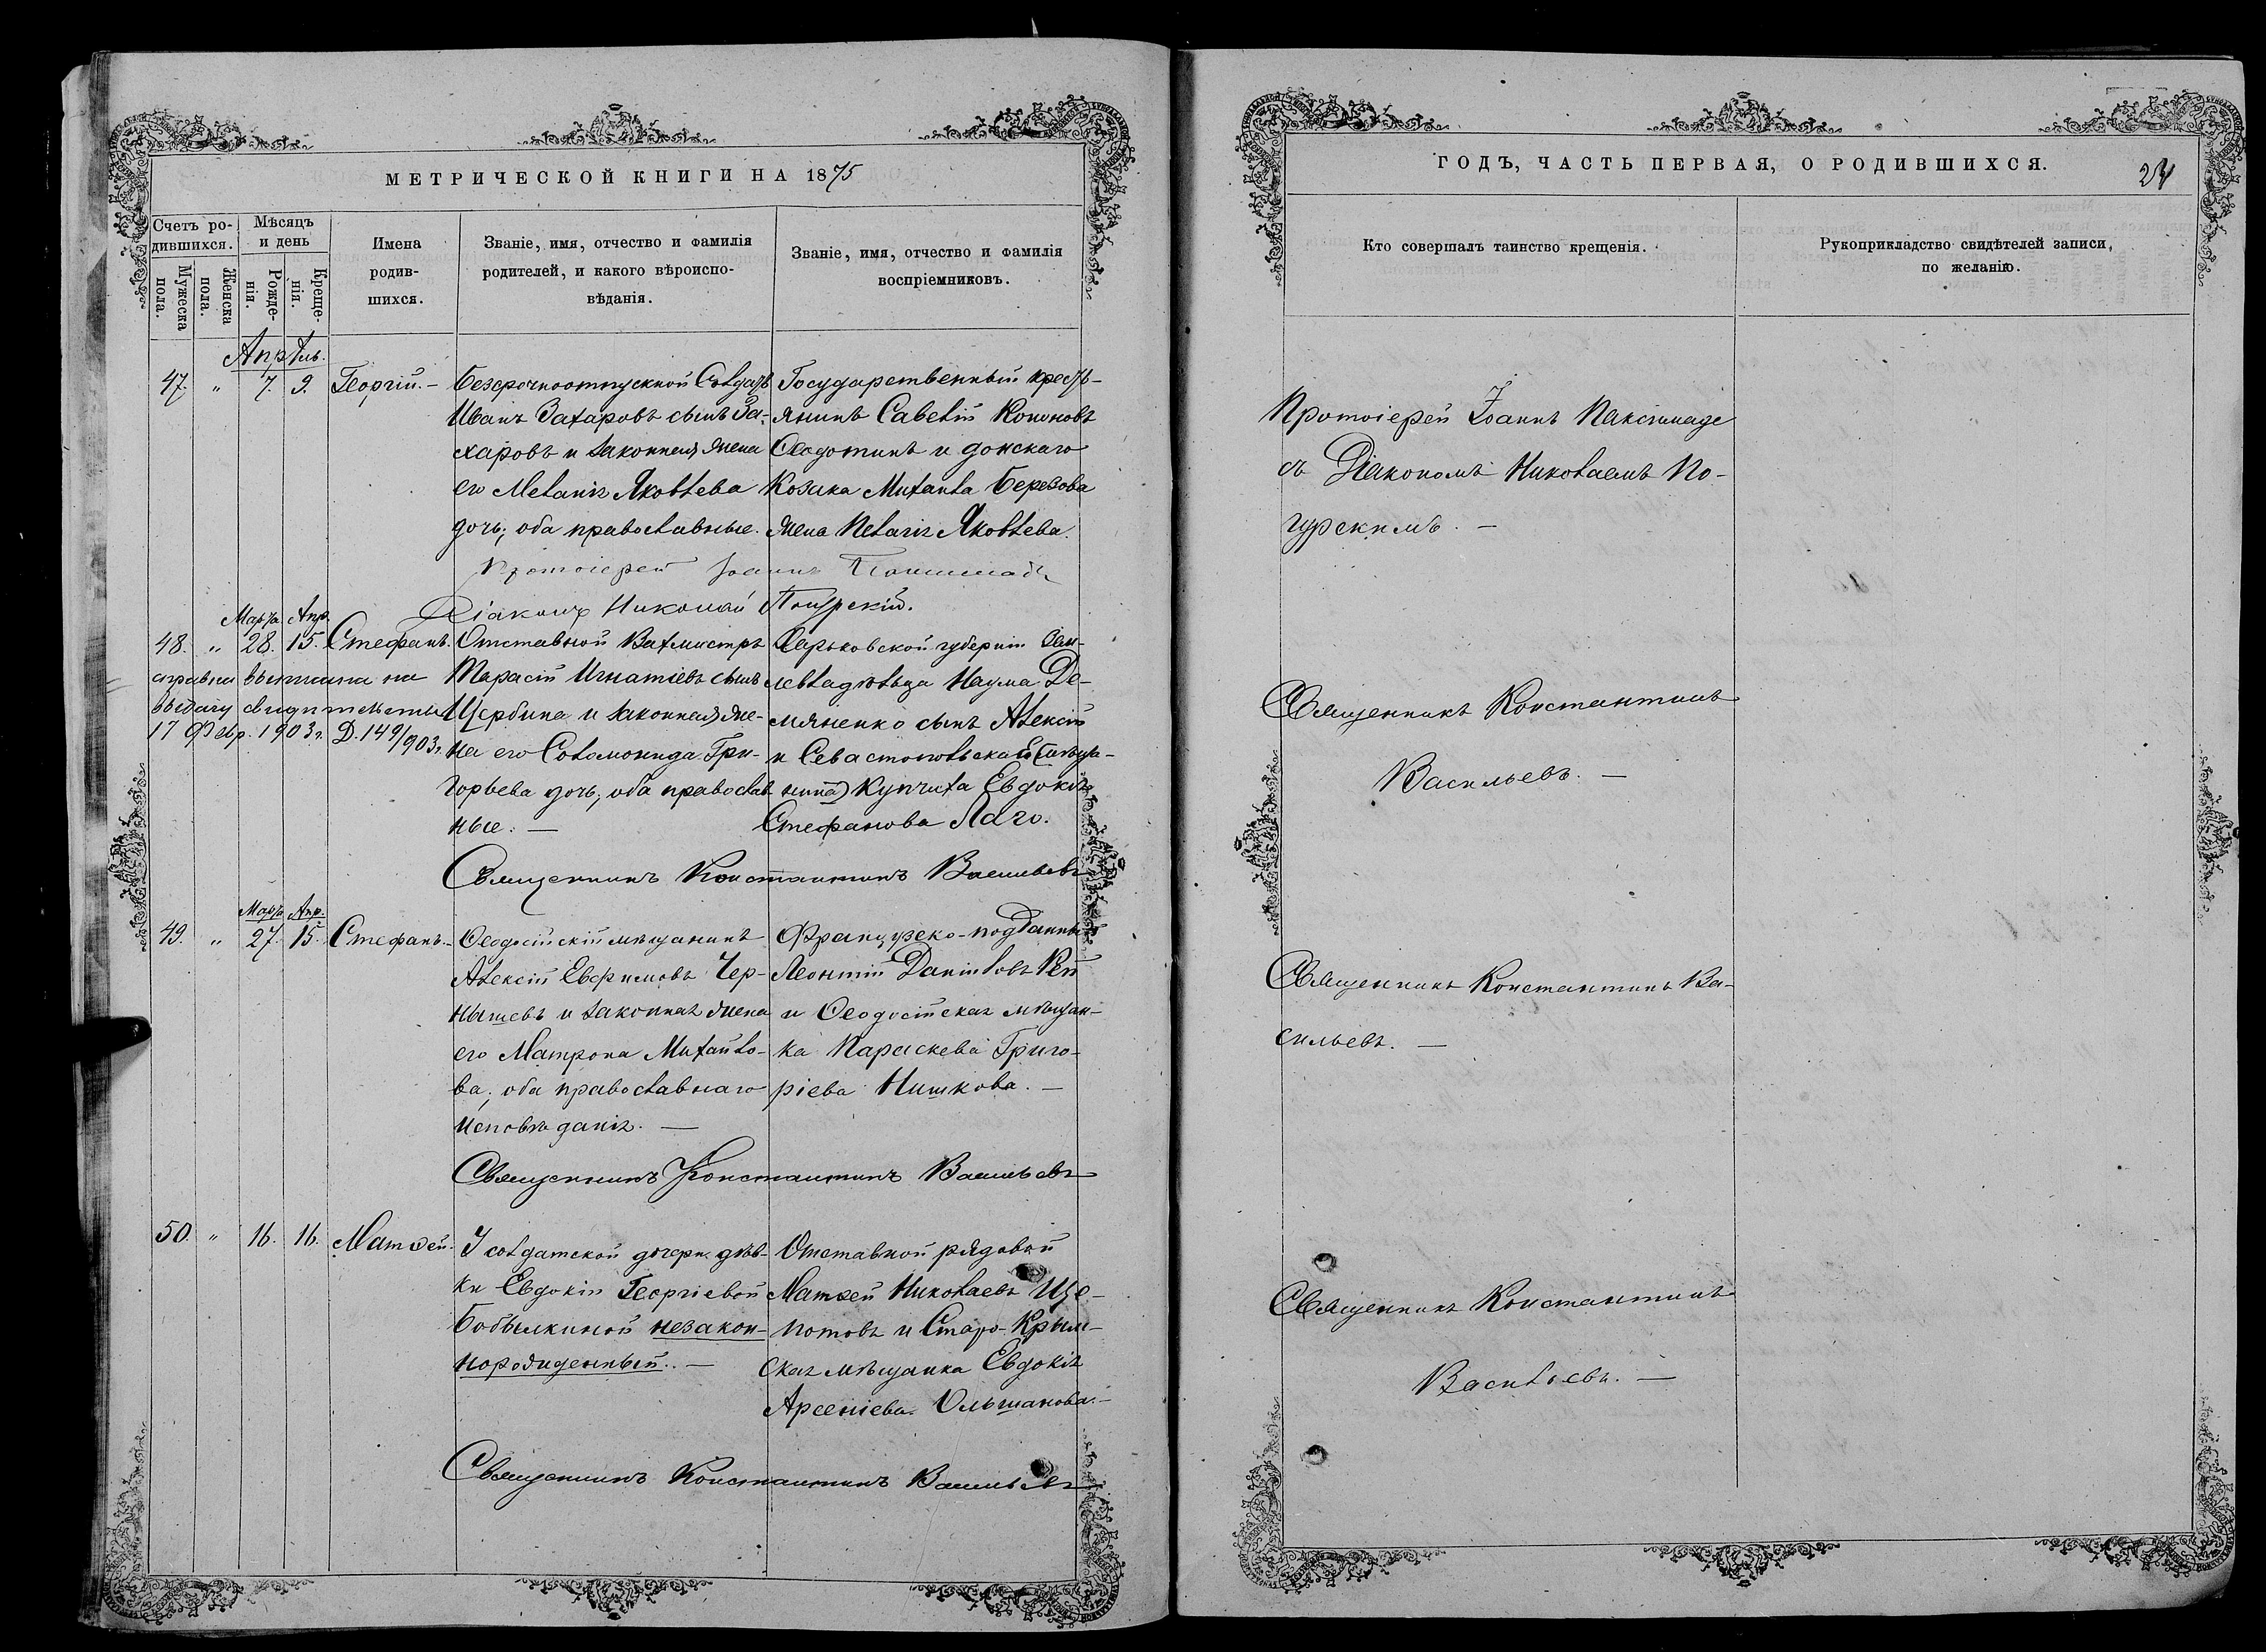 МЕТРИЧЕСКОЙ КНИГИ НА 1875
Счетъ ро-
дившихся.
Мужеска
пола.
Женска
пола.
Мѣсяцъ
и день
Рожде-
нія.
Креще-
нія.
Имена
родив-
шихся.
Званіе, имя, отчество и фамилія
родителей, и какого вѣроиспо-
вѣданія.
Званіе, имя, отчество и фамилія
воспріемниковъ.
Апрѣль.
47. " 7. 9. Георгій. –
Безсрочноотпускной Солдатъ
Иванъ Захаровъ сынъ За-
харовъ и законная жена
его Меланія Яковлева
дочь; оба православные.
Государственный кресть-
янинъ Савелій Кононовъ
Ѳедотинъ и донскаго
Козака Михаила Березова
жена Пелагія Яковлева.
Протоіерей Іоаннъ
Діаконъ Николай Погурскій.
Мартъ. Апр.
48. " 28. 15. Стефанъ.
справка выписана на
выдачу свидѣтельства
17 Февр. 1903 г. Д. 149/903 г.
Отставной Вахмистръ
Тарасій Игнатіевъ сынъ
Щербина и законная же-
на его Соломонида Гри-
горьева дочь; оба православ
ные. –
Харьковской губерніи Зем-
левладѣльца Наума Де-
мяненко сынъ Алексій
и Севастопольская
Купчиха Евдокія
Стефанова Лаго.
Священникъ Константинъ Васильевъ
Мартъ Апр.
49. " 27. 15. Стефанъ. –
Ѳеодосійскій мѣщанинъ
Алексій Евфимовъ Чер-
нышевъ и законная жена
его Матрона Михайло-
ва; оба православнаго
исповѣданія. –
Французско-подданный
Леонтій Даніиловъ Рей
и Ѳеодосійская мѣщан-
ка Параскева Григо-
ріева Нишкова. –
Священникъ Константинъ Васильевъ
50. " 16. 16. Матѳей.
У солдатской дочери дѣв-
ки Евдокіи Георгіевой
Бобылкиной незакон-
норожденный. –
Отставной рядовой
Матѳей Николаевъ Ще-
потовъ и Старо-Крым-
ская мѣщанка Евдокія
Арсеніева Ольшанова. –
Священникъ Константинъ Васильевъ
ГОДЪ, ЧАСТЬ ПЕРВАЯ, О РОДИВШИХСЯ.
Кто совершалъ таинство крещенія.
Рукоприкладство свидѣтелей записи,
по желанію.
Протоіерей Іоаннъ
съ Діакономъ Николаемъ По-
гурскимъ. –
Священникъ Константинъ
Васильевъ. –
Священникъ Константинъ Ва-
сильевъ. –
Священникъ Константинъ
Васильевъ. –